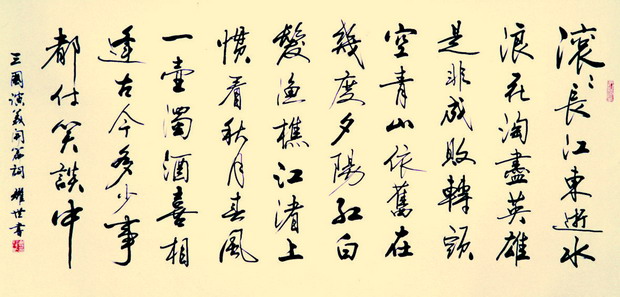 滾〻長江東逝水
浪花淘盡英雄
是非成敗轉頭
空青山依舊在
幾度夕陽紅白
髮漁樵江渚上
慣看秋月春風
一壺濁酒喜相
逢古今多少事
都付笑談中
三國演義開篇詞 耀世書